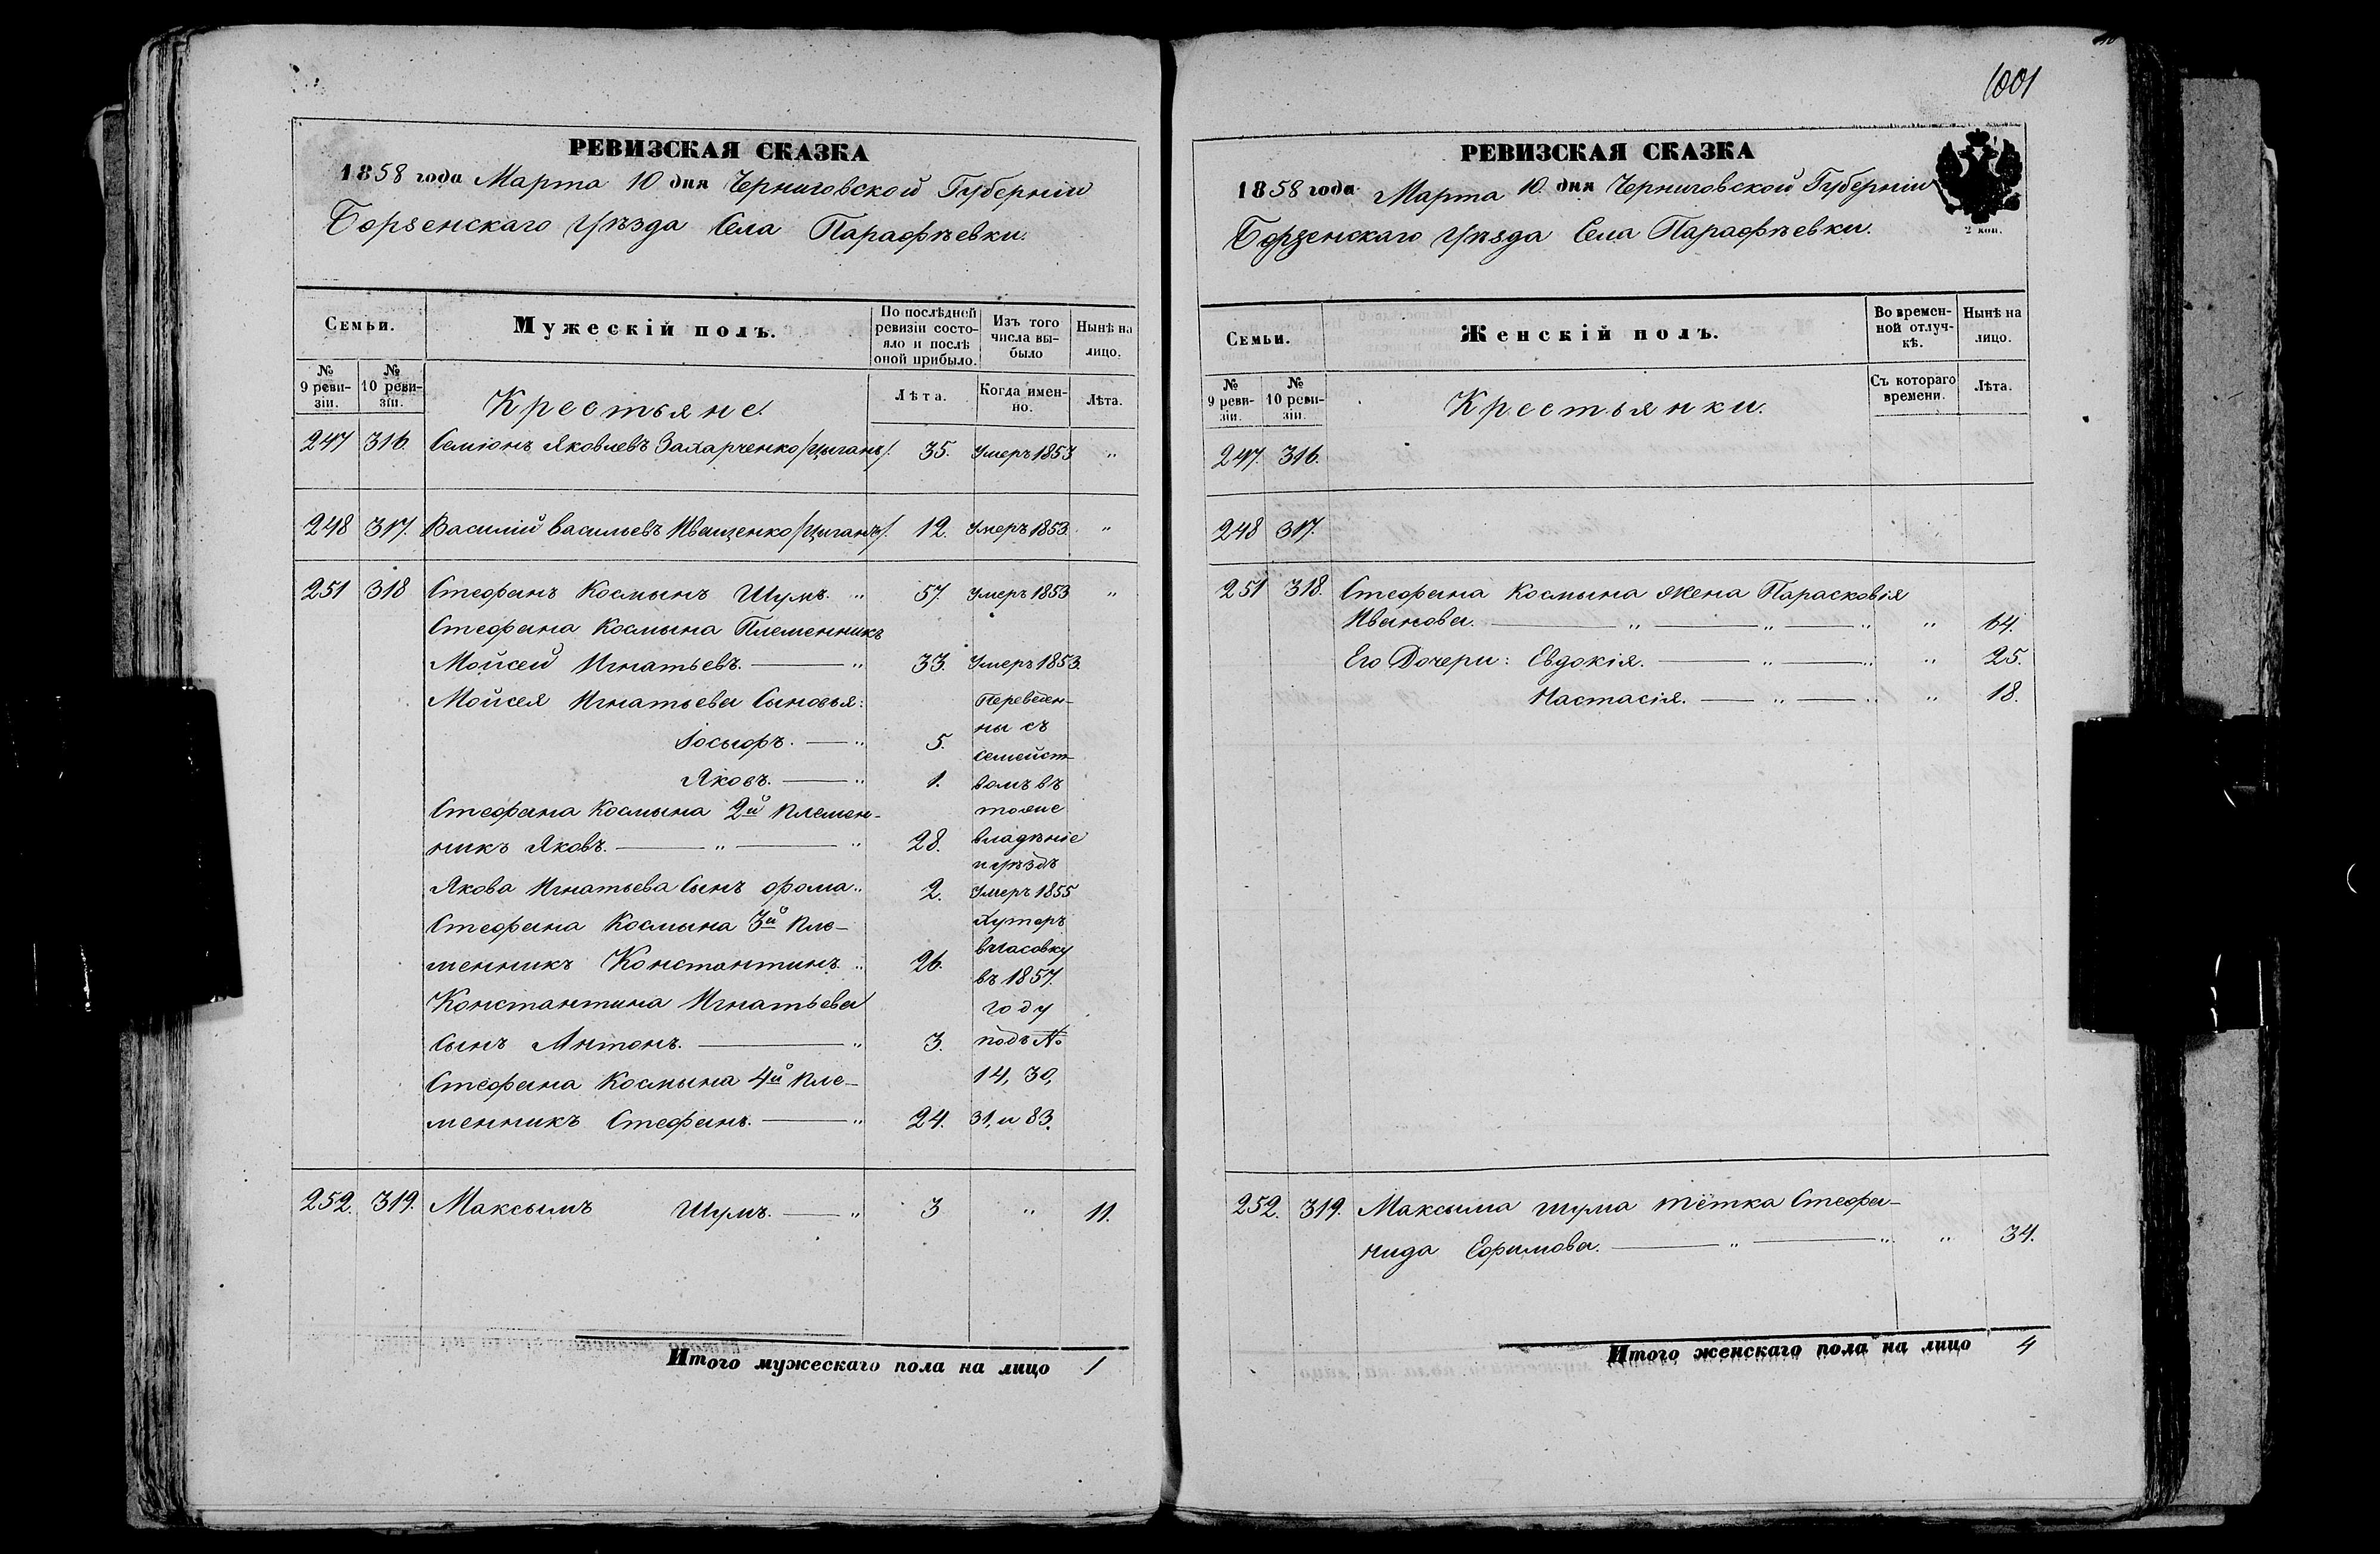 РЕВИЗСКАЯ СКАЗКА
1858 года Марта 10 дня Черниговской Губерніи
Борзенскаго Уѣзда Села Парафѣевки.
Семьи.
Мужескій полъ.
По послѣдней ревизіи состояло и послѣ оной прибыло.
Изъ того числа выбыло
Нынѣ на лицо.
№ 9 ревизіи.
№ 10 ревизіи.
Крестьяне.
Лѣта.
Когда именно.
Лѣта.
247 316. Семіонъ Яковлевъ Захарченко /цыганъ/. 35. Умеръ 1853 "
248 317. Василій Васильевъ Иващенко /цыганъ/. 12. Умеръ 1853. "
251 318 Стефанъ Космынъ Шумъ. " 57. Умеръ 1853 "
Стефана Космына Племенникъ
Мойсей Игнатьевъ. — " 33. Умеръ 1853.
Мойсея Игнатьева Сыновья: Переведен-
ны съ
Іосыфъ. — " 5.
семейст-
Яковъ. — " 1. вомъ въ
Стефана Космына 2й племен- тоже
никъ Яковъ. — " — " 28. владѣніе
и уѣздъ
Якова Игнатьева Сынъ Фома " 2. Умеръ 1855
Стефана Космына 3й пле- Хуторъ
менникъ Константинъ. " 26.
въ 1857.
Константина Игнатьева году
Сынъ Антонъ. — " 3. подъ №
Стефана Космына 4й пле- 14, 30,
менникъ Стефанъ. — " 24. 31, и 83.
252. 319. Максымъ Шумъ. — " 3 " 11.
Итого мужескаго пола на лицо 1
1001
РЕВИЗСКАЯ СКАЗКА
1858 года Марта 10 дня Черниговской Губерніи
Борзенскаго Уѣзда Села Парафѣевки.
2 коп.
Семьи.
Женскій полъ.
Во временной отлучкѣ.
Нынѣ на лицо.
№ 9 ревизіи.
№ 10 ревизіи.
Крестьянки.
Съ котораго времени.
Лѣта.
247. 316.
248 317.
251 318. Стефана Космына жена Парасковія
Иванова. — " — " — " " 64.
Его Дочери: Евдокія. — " — " " 25.
Настасія. — " — " " 18.
252. 319. Максыма Шума тётка Стефа-
нида Ефимова. — " — " " 34.
Итого женскаго пола на лицо 4